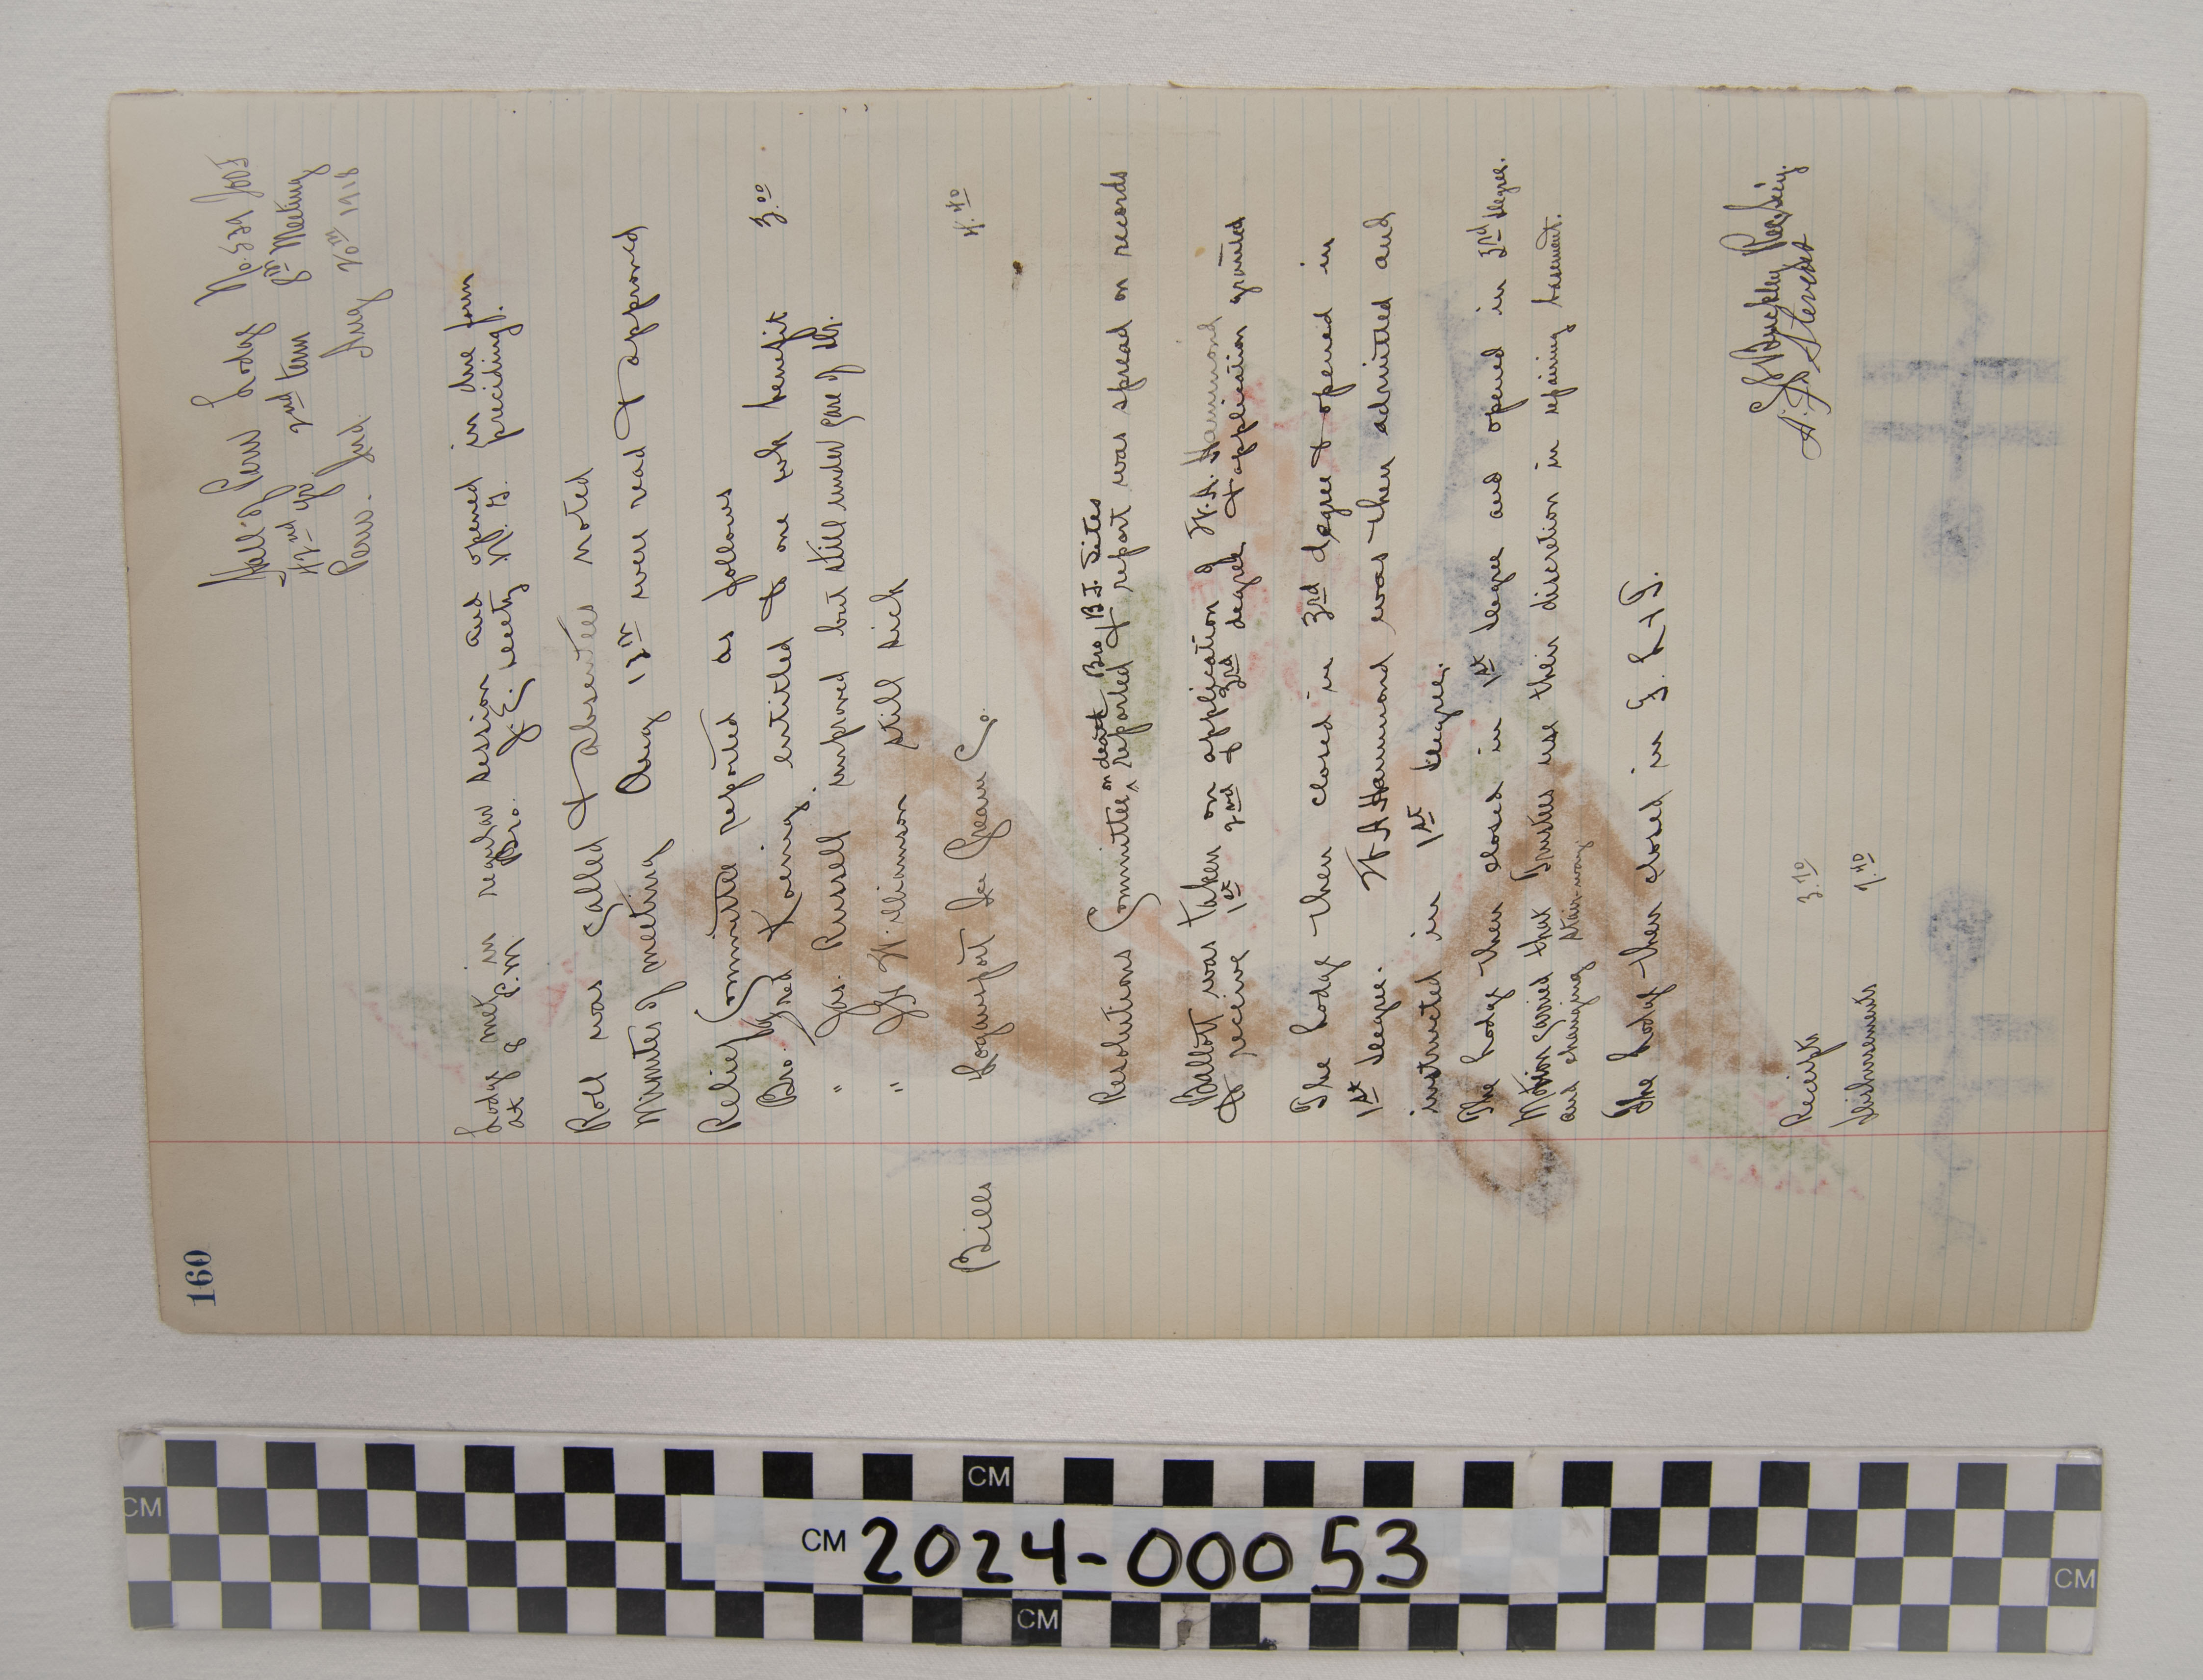 160
Hall of Peru Lodge No. 529 IOOF
42nd yr 2nd term 8th Meeting
Peru. Ind. Aug 20th 1918
Lodge met in regular session and opened in due form
at 8 P.M. Bro. J. E. Beecty N. G. preciding.
Roll was called & absentees noted
Minutes of meeting Aug 13th were read & approved
Relief Committee reported as follows
Bro. Fred Koenig. entitled to one wk benefit 3.00
" Jas. Russell improved but still under care of Dr.
" Williamson still sick
Bills Logansport Ice Cream Co. 4.40
on death Bro B. J. Sites
Resolutions Committee ^ reported & report was spread on records
Ballott was taken on application of H. A. Hammond
to receive 1st 2nd & 3rd degree & application granted
The Lodge then closed in 3rd degree & opened in
1st degree. H A Hammond was then admitted and
instructed in 1st degree.
The Lodge then closed in 1st degree and opened in 3rd degree.
Motion carried that Trustees use their discretion in repairing basement.
and changing stairway
The Lodge then closed in F. L & T.
S. Buckley Rec. Secy.
Stevens
Receipts 3.70
Disbursements 7.40
CM
CM
CM 2024-00053
CM
CM